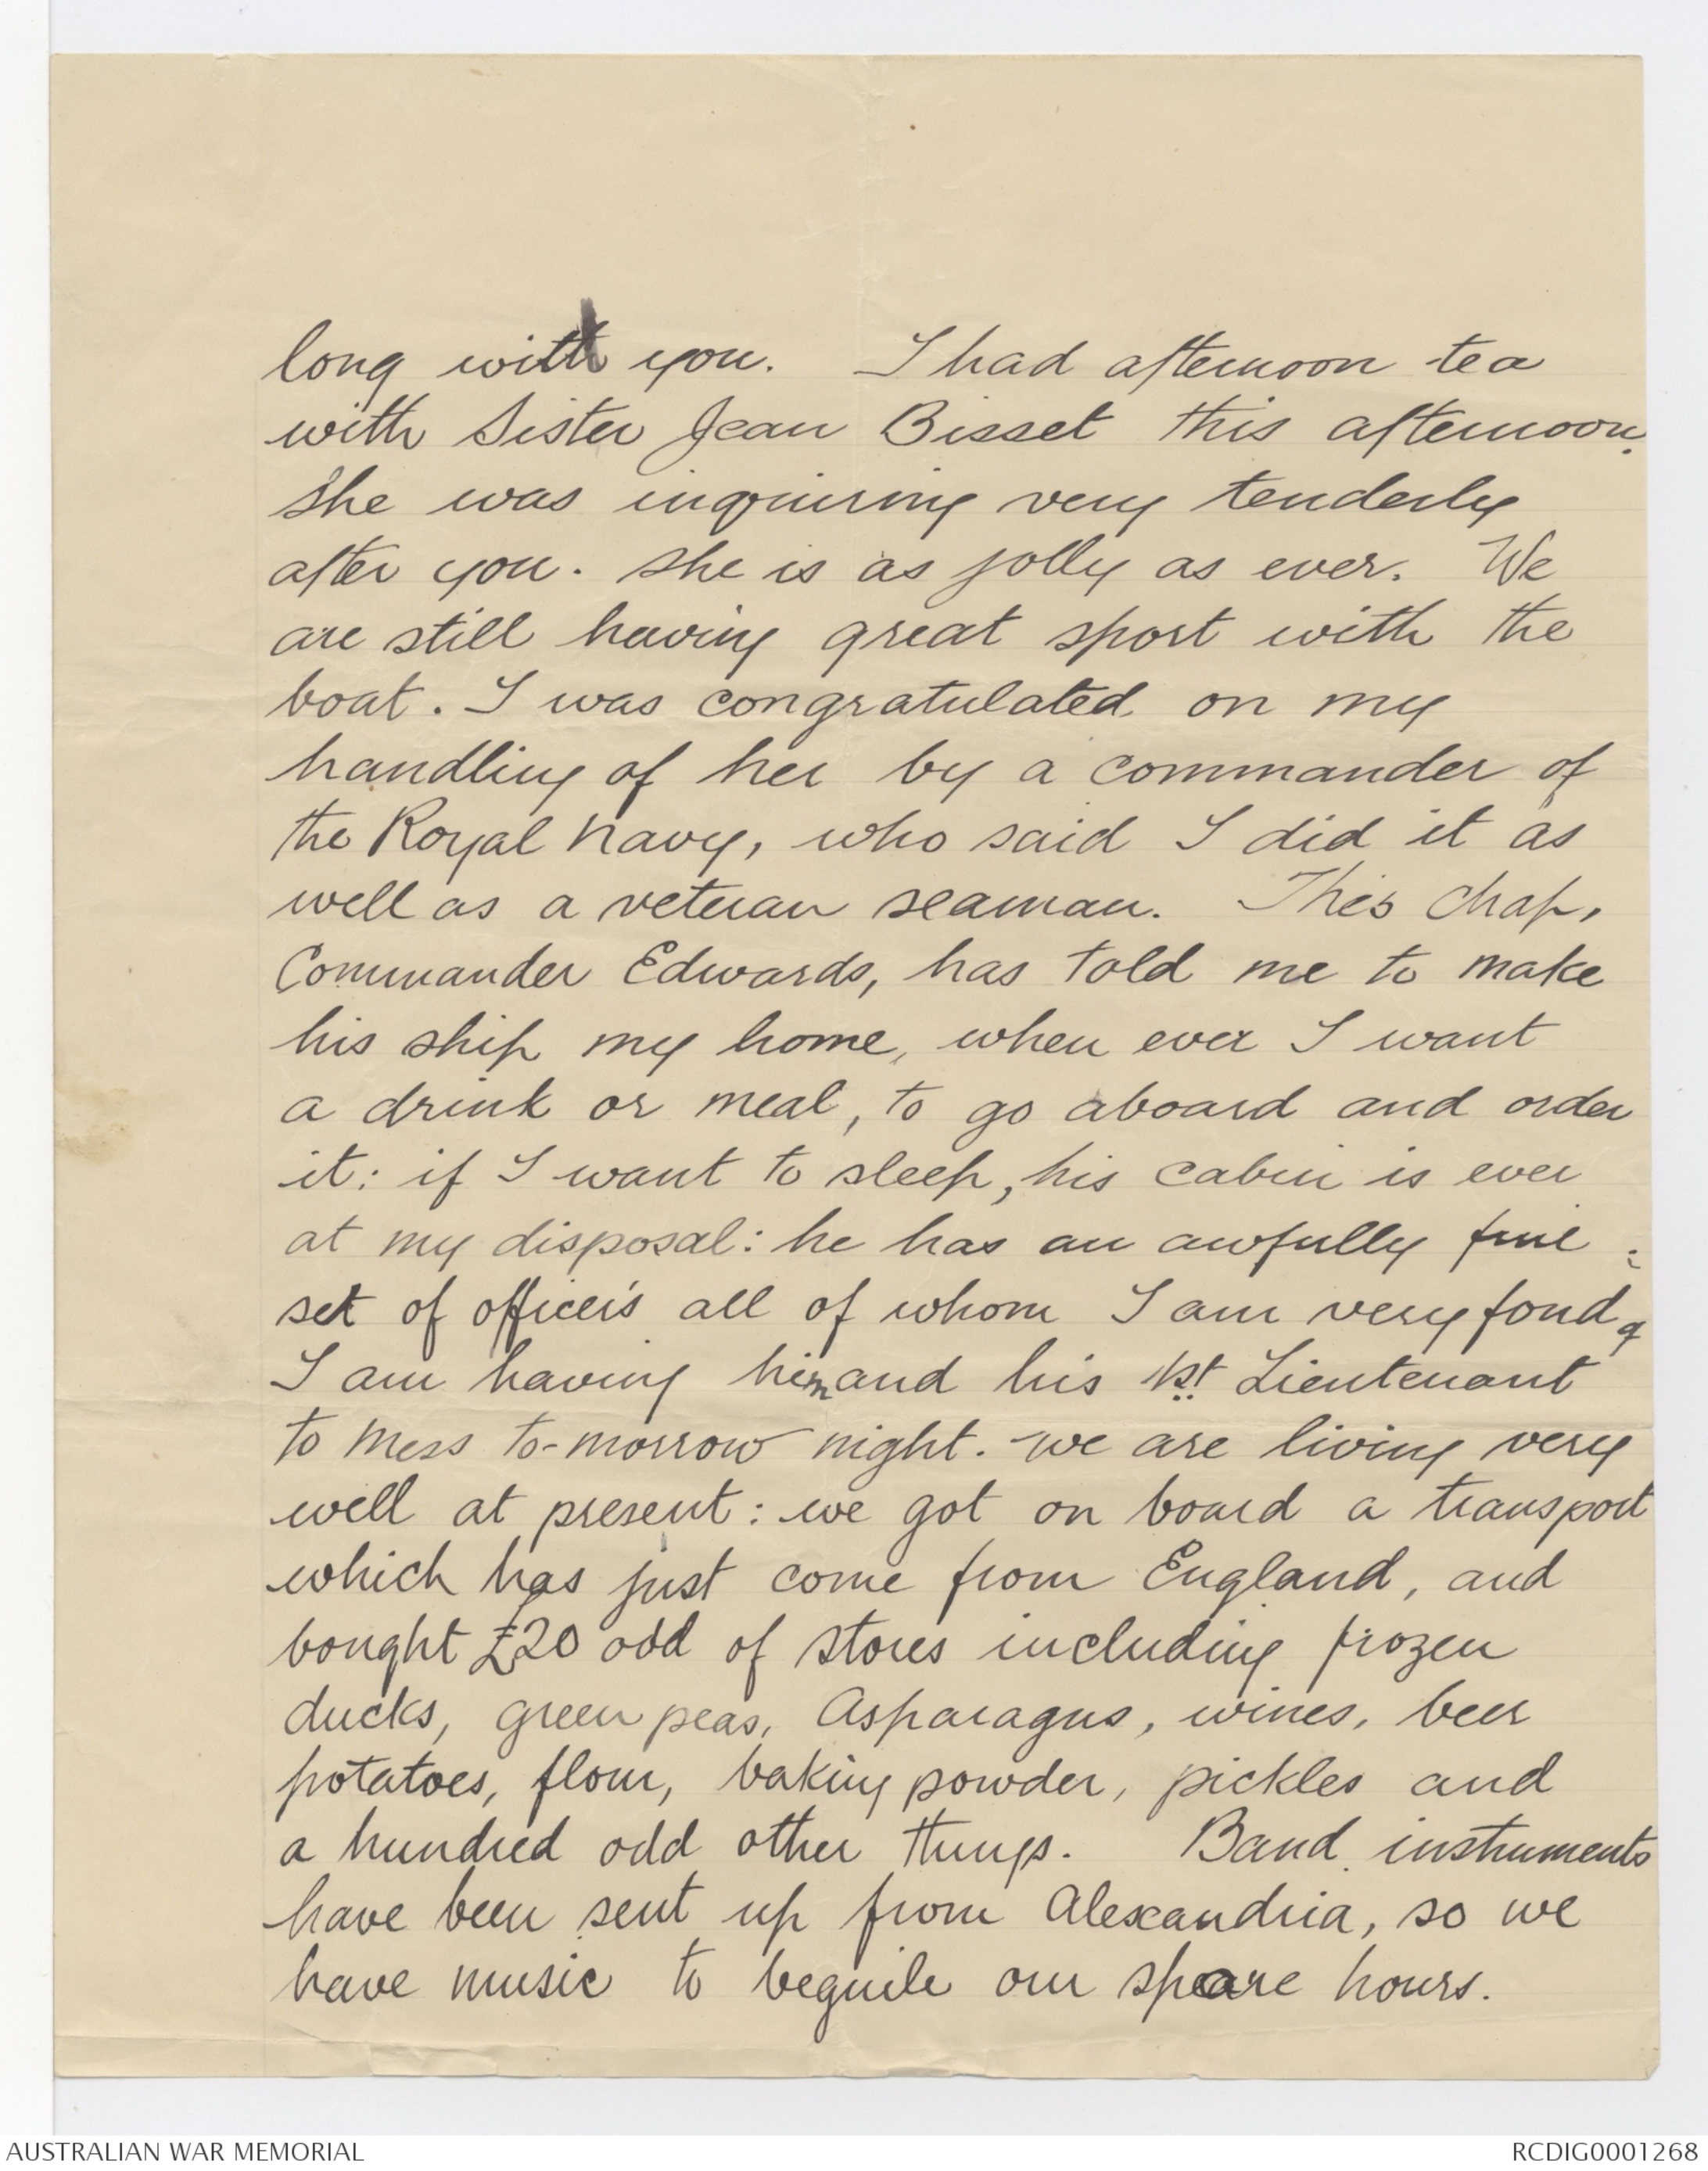 long with you. I had afternoon tea
with Sister Jean Bisset this afternoon.
She was inquiring very tenderly
after you. She is as jolly as ever. We
are still having great sport with the
boat. I was congratulated on my
handling of her by a commander of
the Royal Navy, who said I did it as
well as a veteran seaman. This chap,
Commander Edwards, has told me to make
his ship my home, when ever I want
a drink or meal, to go aboard and order
it: if I want to sleep, his cabin is ever
at my disposal: he has an awfully fine
set of officers all of whom I am very fond of
I am having him and his 1st Lieutenant
to mess to-morrow night. We are living very
well at present: we got on board a transport
which has just come from England, and
bought £20 odd of stores including frozen
ducks, green peas, Asparagus, wines, beer
potatoes, flour, baking powder, pickles and
a hundred odd other things. Band instruments
have been sent up from Alexandria, so we
have music to beguile our spare hours.
AUSTRALIAN WAR MEMORIAL
RCDIG0001268